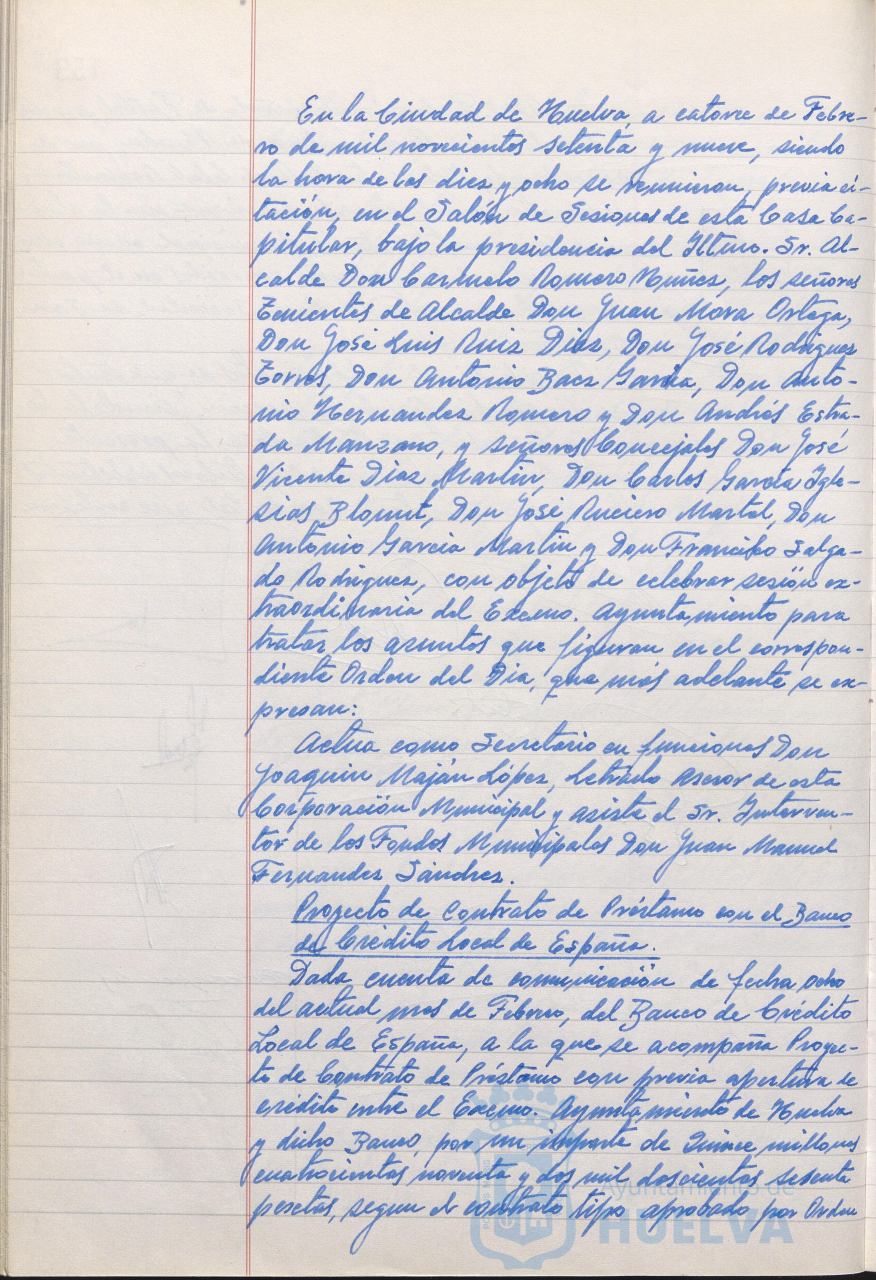 En la Ciudad de Huelva, a catorce de Febre-
ro de mil novecientos setenta y nueve, siendo
la hora de las diez y ocho se reunieron, previa ci-
tación, en el Salón de Sesiones de esta Casa Ca-
pitular, bajo la presidencia del Iltmo. Sr. Al-
calde Don Carmelo Romero Núñez, los señores
Tenientes de Alcalde Don Juan Mora Ortega,
Don José Luis Ruiz Díaz, Don José Rodriguez
Torres, Don Antonio Baez García, Don Anto-
nio Hernandez Romero y Don Andrés Estra-
da Manzano, y señores Concejales Don José
Vicente Diaz Martin, Don Carlos García Igle-
sias Blount, Don José Ruciero Martel, Don
Antonio Garcia Martin y Don Francisco Salga-
do Rodriguez, con objeto de celebrar sesión ex-
traordinaria del Excmo. Ayuntamiento para
tratar los asuntos que figuran en el correspon-
diente Orden del Dia, que más adelante se ex-
presan:
Actua como Secretario en funciones Don
Joaquin Maján López, Letrado Asesor de esta
Corporación Municipal y asiste el Sr. Interven-
tor de los Fondos Municipales Don Juan Manuel
Fernandez Sánchez.
Proyecto de Contrato de Préstamo con el Banco
de Crédito Local de España.
Dada cuenta de comunicación de fecha ocho
del actual mes de Febrero, del Banco de Crédito
Local de España, a la que se acompaña Proyec-
to de Contrato de Préstamo con previa apertura de
crédito entre el Excmo. Ayuntamiento de Huelva
y dicho Banco, por un importe de Quince millones
cuatrocientas noventa y dos mil doscientas sesenta
pesetas, segun el contrato tipo aprobado por Orden
Ayuntamiento de
HUELVA